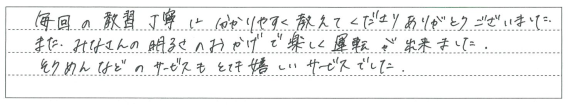 毎回の教習丁寧に分かりやすく教えてくださりありがとうございました.
また.みなさんの明るさのおかげで楽しく運転が出来ました.
そうめんなどのサービスもとても嬉しいサービスでした.